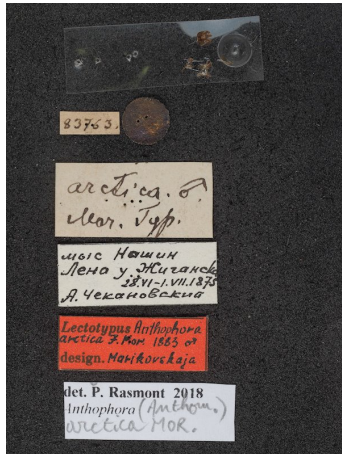 83763.
arctica. ♂
Mor. Typ.
мыс Нашин
Лена у Жиганска
28.VI-1.VII.1875
А. Чекановский
Lectotypus Anthophora
arctica F. Mor. 1883 ♂
design. Marikovskaja
det. P. Rasmont 2018
Anthophora (Anthom.)
arctica MOR.